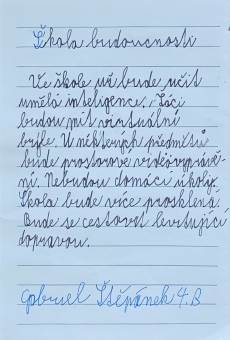 Škola budoucnosti
Ve škole už bude učit
umělá inteligence. Žáci
budou mít virtuální
brýle. U některých předmětů
bude prostorové videjvyprávě-
ní. Nebudou domácí úkoly.
Škola bude více prosklená.
Bude se cestovat levitující
dopravou.
Gabriel Štěpánek 4.B